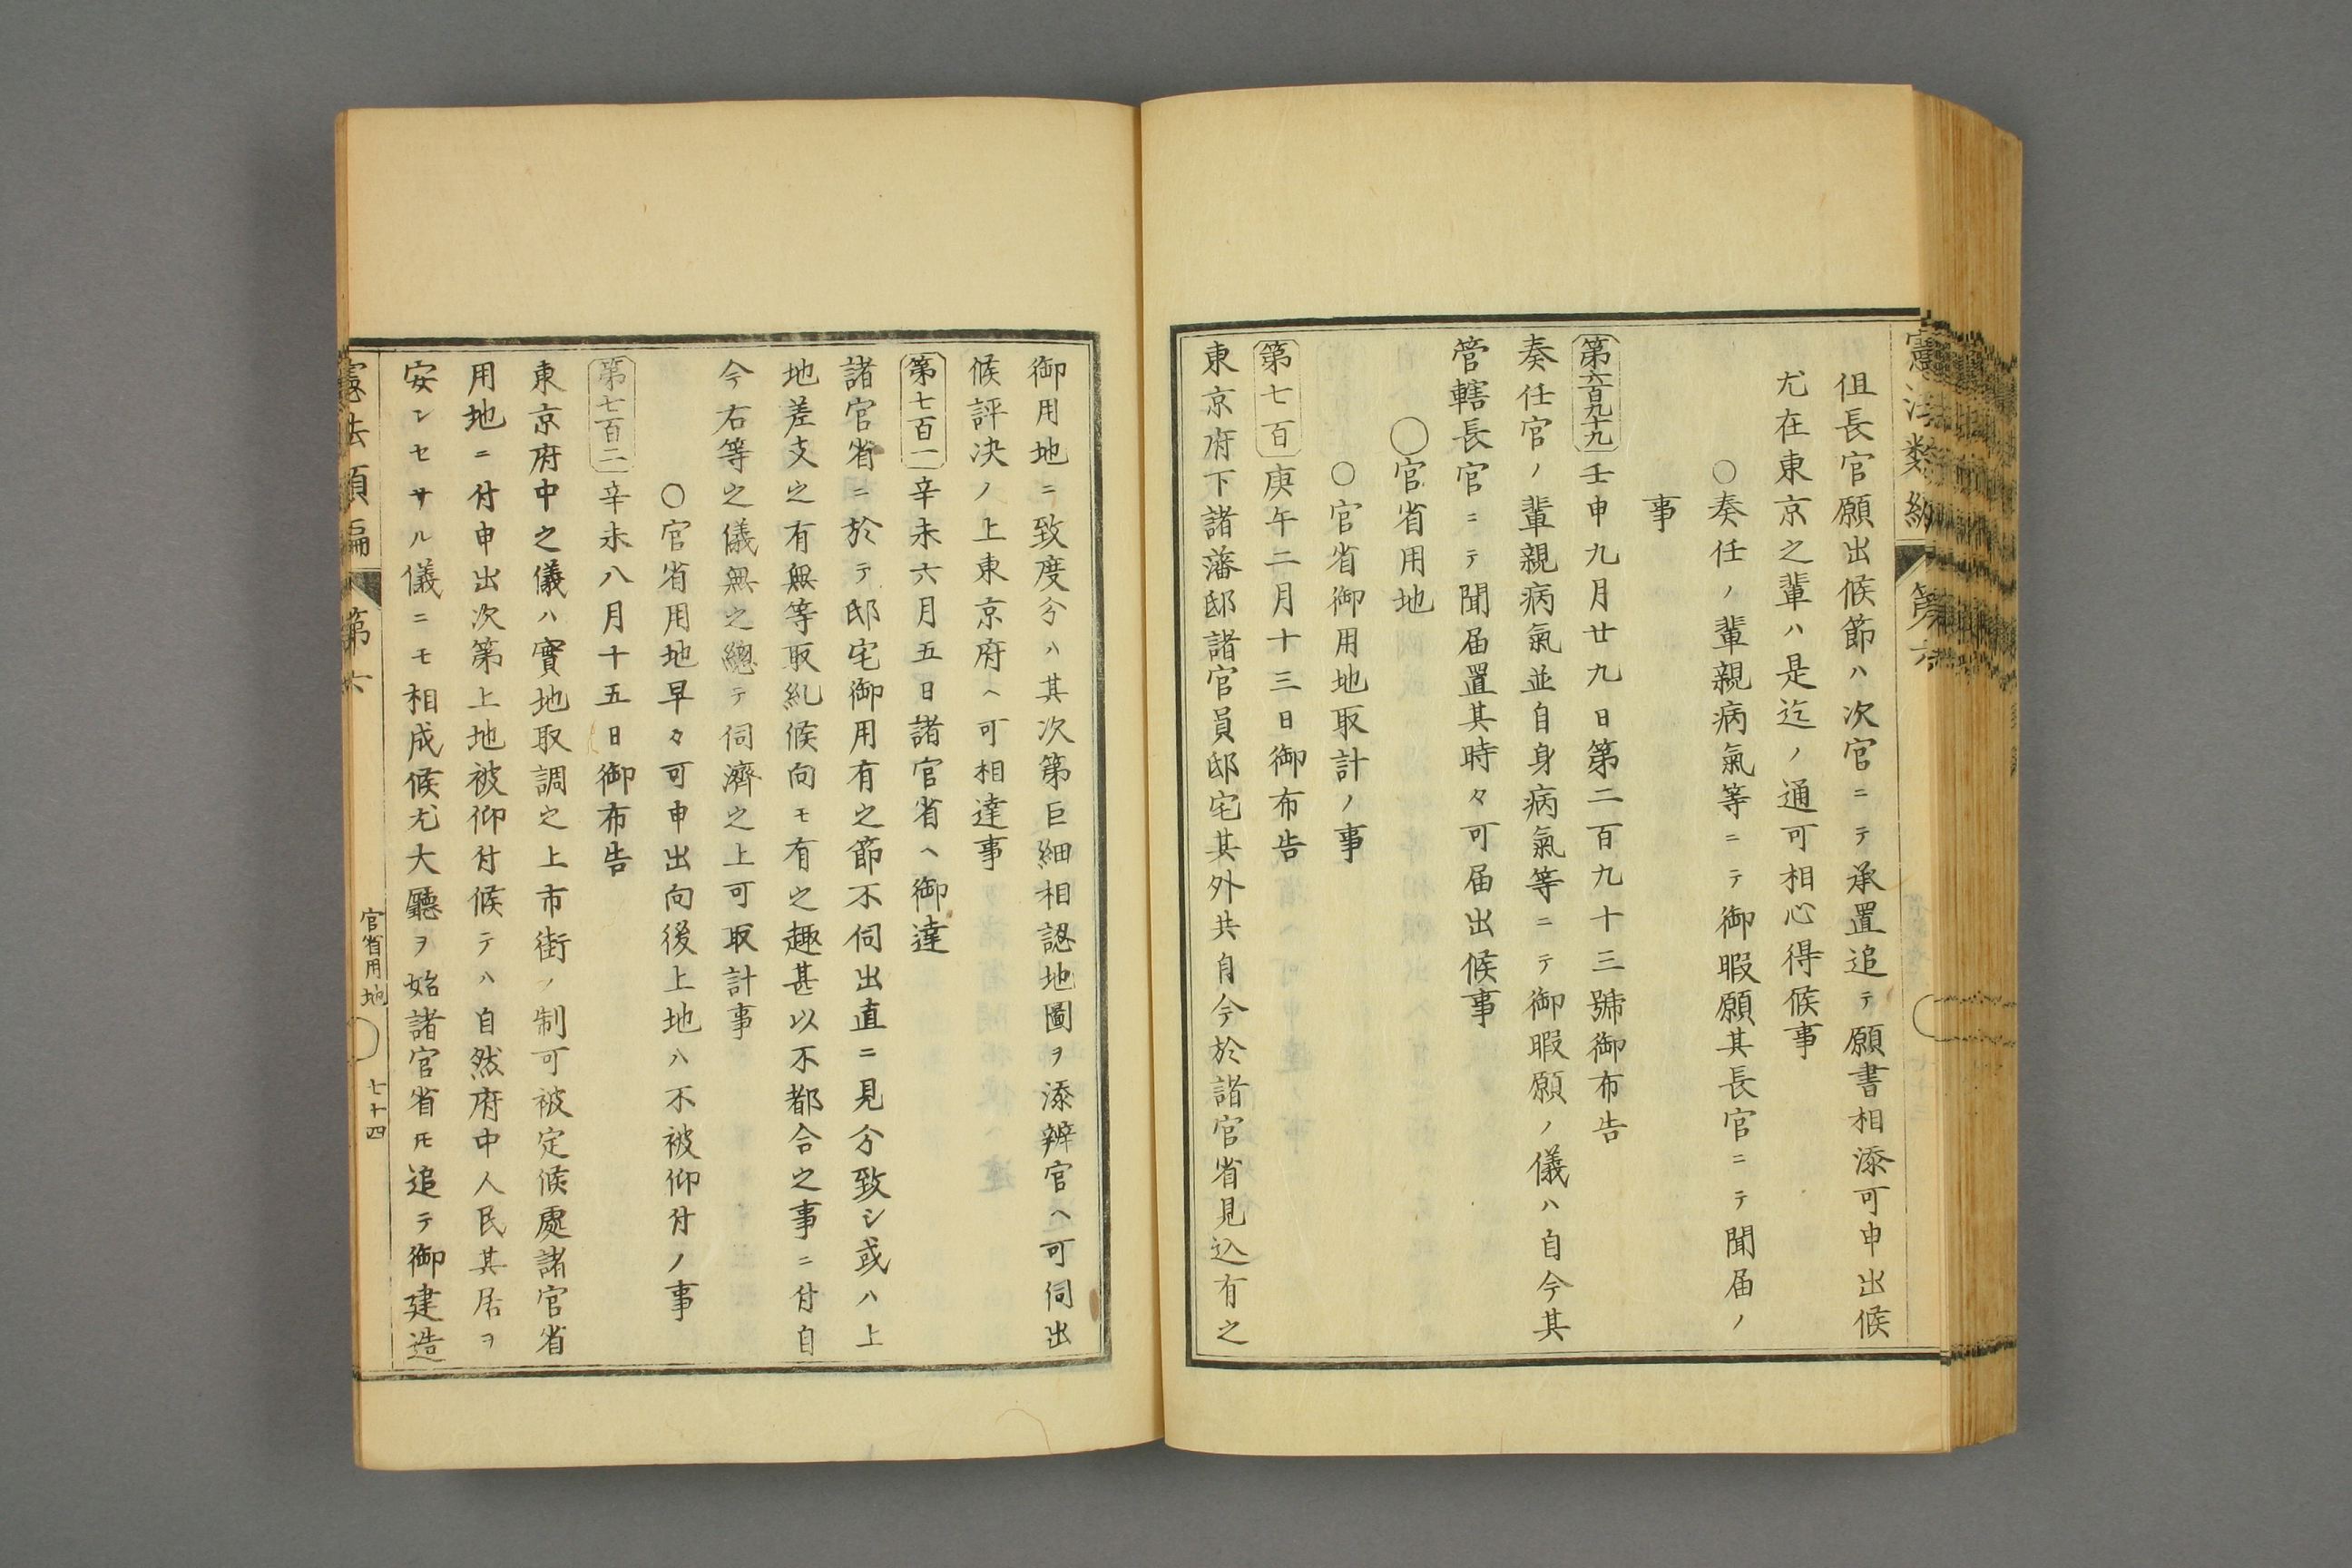 憲法類編 第六
伹長官願出候節ハ次官ニテ承置追テ願書相添可申出候
尤在東京之輩ハ是迄ノ通可相心得候事
○奏任ノ輩親病氣等ニテ御暇願其長官ニテ聞届ノ
事
第六百九十九 壬申九月廿九日第二百九十三號御布告
奏任官ノ輩親病氣並自身病氣等ニテ御暇願ノ儀ハ自今其
管轄長官ニテ聞届置其時々可届出候事
○官省用地
○官省御用地取計ノ事
第七百 庚午二月十三日御布告
東京府下諸藩邸諸官員邸宅其外共自今於諸官省見込有之
御用地ニ致度分ハ其次第巨細相認地圖ヲ添辨官ヘ可伺出
候評決ノ上東京府ヘ可相達事
第七百一 辛未六月五日諸官省ヘ御達
諸官省ニ於テ邸宅御用有之節不伺出直ニ見分致シ或ハ上
地差支之有無等取糺候向モ有之趣甚以不都合之事ニ付自
今右等之儀無之總テ伺濟之上可取計事
○官省用地早々可申出向後上地ハ不被仰付ノ事
第七百二 辛未八月十五日御布告
東京府中之儀ハ實地取調之上市街ノ制可被定候處諸官省
用地ニ付申出次第上地被仰付候テハ自然府中人民其居ヲ
安ンセサル儀ニモ相成候尤大廳ヲ始諸官省𪜈追テ御建造
憲法類編 第六 官省用地 七十四